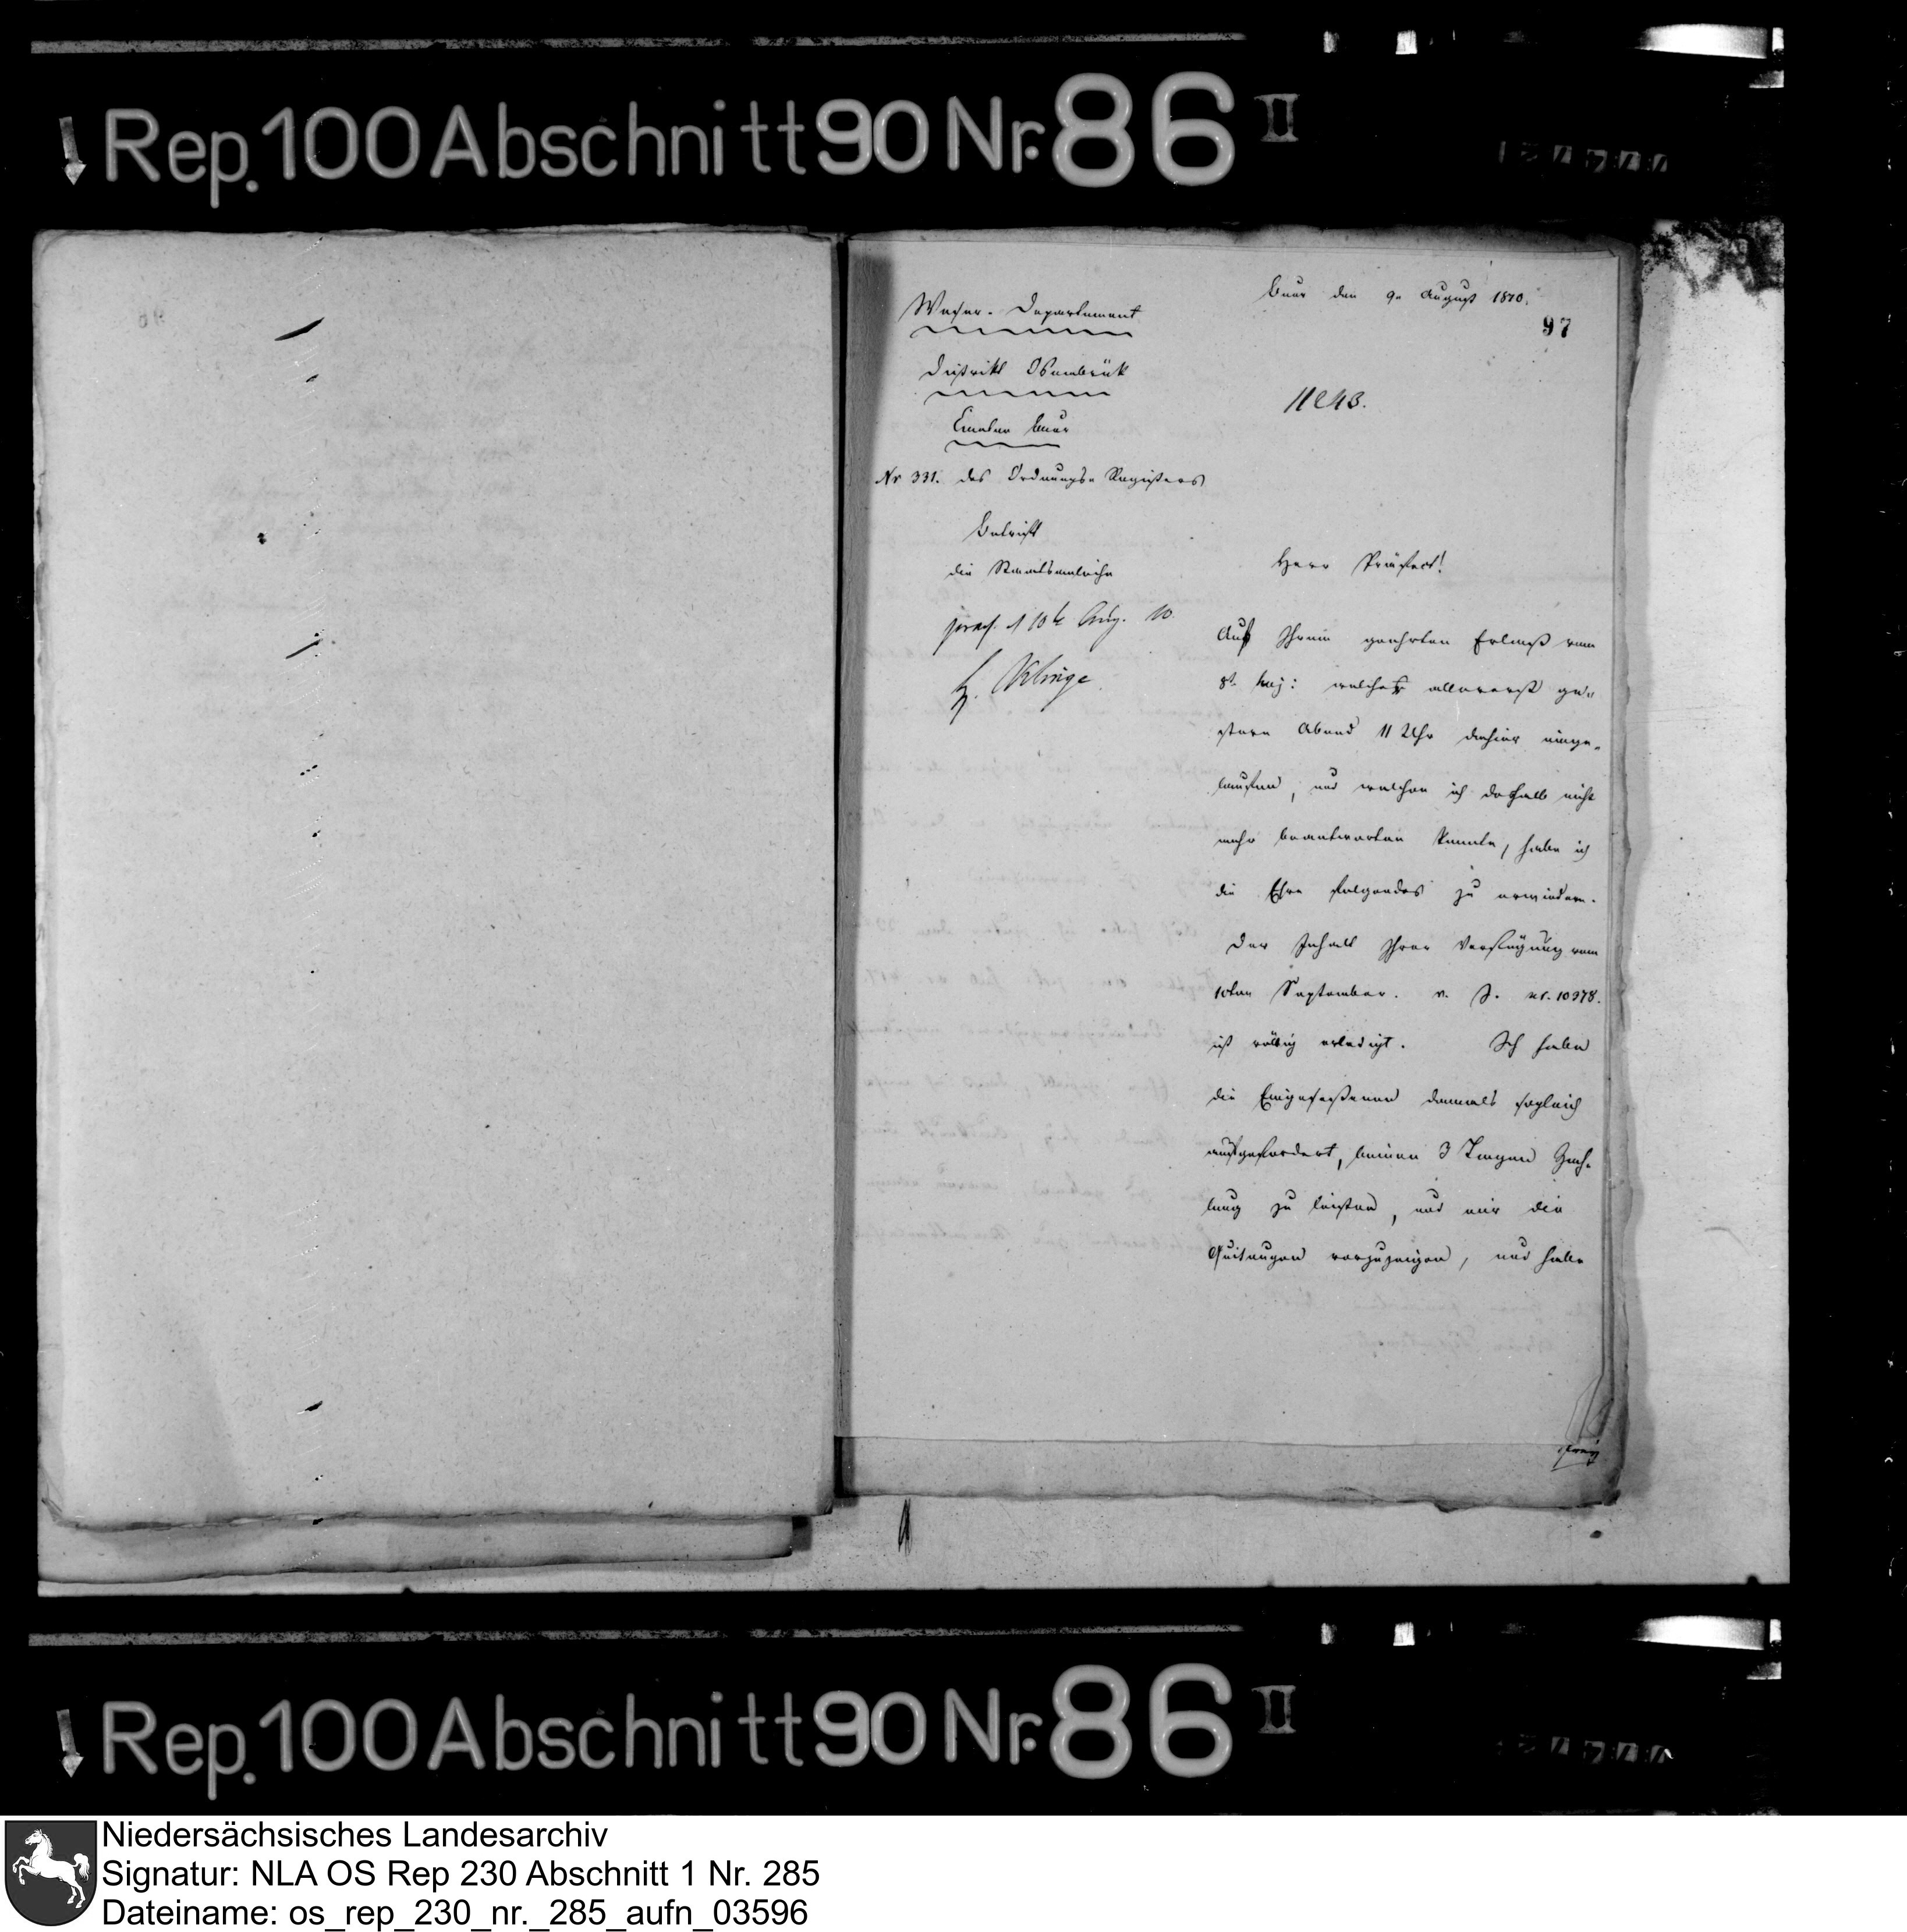 Rep. 100 Abschnitt 90 Nr. 86 II
Buer den 9n August 1810.
97
Weser-Departement
District Osnabrück
Canton Buer
Nr 331. des Ordnungs-Registers
11243.
Betrifft
die Staatsanleihe
Herr Präfect!
praes. d 10t Aug. 10
Klinge
Auf Ihren geehrten Erlaß vom
8t huj: welcher allererst ge-
stern Abend 11 Uhr dahier einge-
laufen, und welchen ich deshalb nicht
mehr beantworten konnte, habe ich
die Ehre folgendes zu erwiedern.
Der Inhalt Ihrer Verfügung vom
10ten September. v. J. nr. 10378.
ist völlig erledigt. Ich habe
die Eingesessenen damals sogleich
aufgefordert, binnen 3 Tagen Zah-
lung zu leisten, und mir die
Quitungen vorzuzeigen, und habe
Rep. 100 Abschnitt 90 Nr. 86 II
Niedersächsisches Landesarchiv
Signatur: NLA OS Rep 230 Abschnitt 1 Nr. 285
Dateiname: os_rep_230_nr._285_aufn_03596